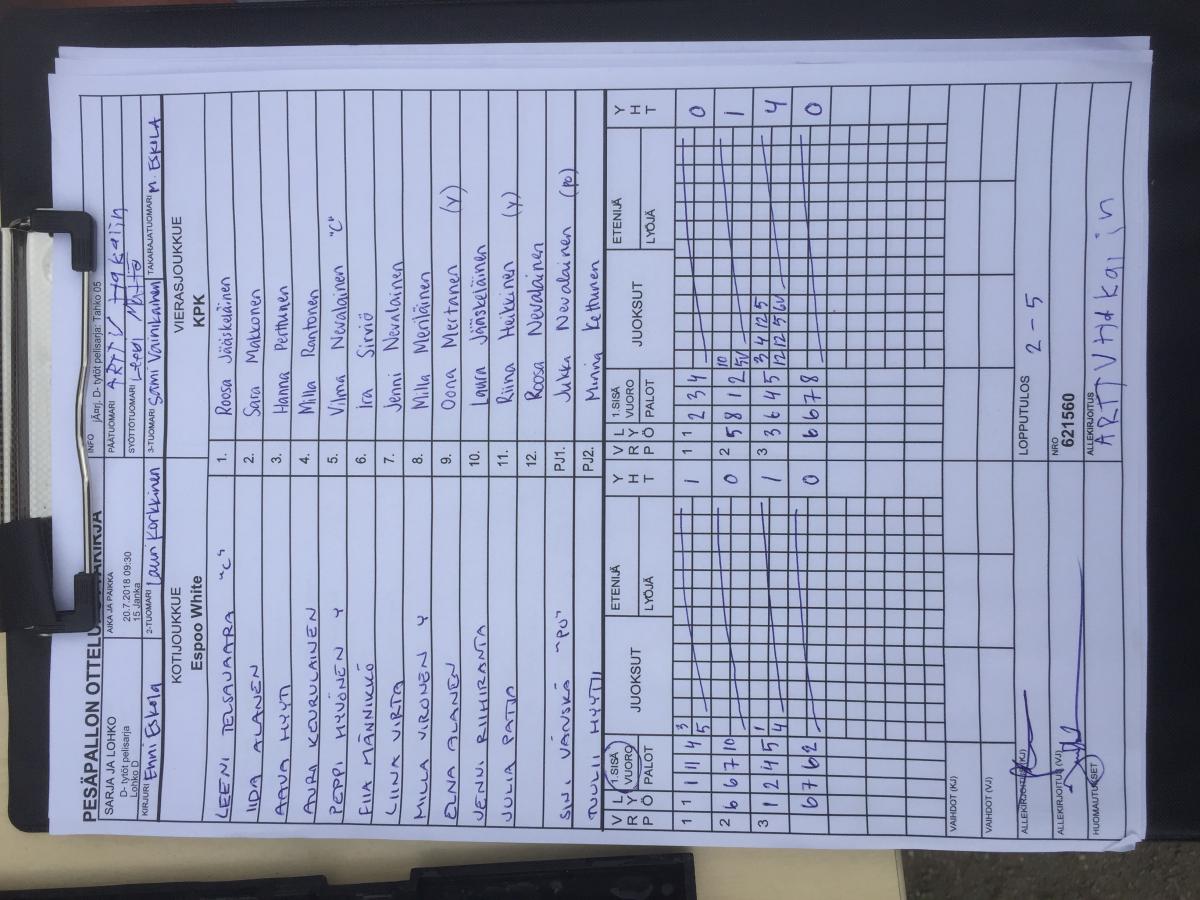 PESÄPALLON OTTELU
SARJA JA LOHKO
D- tytöt pelisarja
Lohko D
AIKA JA PAIKKA
20.7.2018 09:30
15 Janka
INFO jÄ¤rj. D- tytöt pelisarja: Tahko 05
PÄÄTUOMARI ARTTU Hakalin
SYÖTTÖTUOMARI
KIRJURI Enni Eskola
2-TUOMARI Lauri Korkkinen
3-TUOMARI Sami Vainikainen
TAKARAJATUOMARI M. ESKOLA
KOTIJOUKKUE
Espoo White
VIERASJOUKKUE
KPK
LEENI TELSAVAARA "C" 1. Roosa Jääskeläinen
IIDA ALANEN 2. Sara Makkonen
AAVA HYYTI 3. Hanna Perttunen
AURA KEURULAINEN 4. Milla Rantonen
PEPPI HYVÖNEN Y 5. Vilma Nevalainen "C"
FIIA MÄNNIKKÖ 6. Ira Sirviö
LIINA VIRTA 7. Jenni Nevalainen
MILLA VIRONEN Y 8. Milla Meriläinen
ELNA ALANEN 9. Oona Mertanen (Y)
JENNI RIIHIRANTA 10. Laura Jääskeläinen
JULIA PATJA 11. Riina Heikkinen (Y)
12. Roosa Nevalainen
SINI VÄNSKÄ "PJ" PJ1. Jukka Nevalainen (PJ)
TUULII HYYTI PJ2. Minna Kettunen
V R P L Y Ö 1.SISÄ VUORO PALOT JUOKSUT ETENIJÄ LYÖJÄ Y H T V R P L Y Ö 1.SISÄ VUORO PALOT JUOKSUT ETENIJÄ LYÖJÄ Y H T
1 1 1 11 4 3 5 1 1 1 2 3 4 0
2 6 6 7 10 0 2 5 8 1 2 10 5V 1
3 1 2 4 5 1 4 1 3 3 6 4 5 3 4 12 5 12 12 5 6V 4
6 7 6 2 0 6 6 7 8 0
VAIHDOT (KJ)
VAIHDOT (VJ)
ALLEKIRJOITUS (KJ)
LOPPUTULOS 2-5
ALLEKIRJOITUS (VJ)
NRO
621560
HUOMAUTUKSET
ALLEKIRJOITUS
ARTTU Hakalin